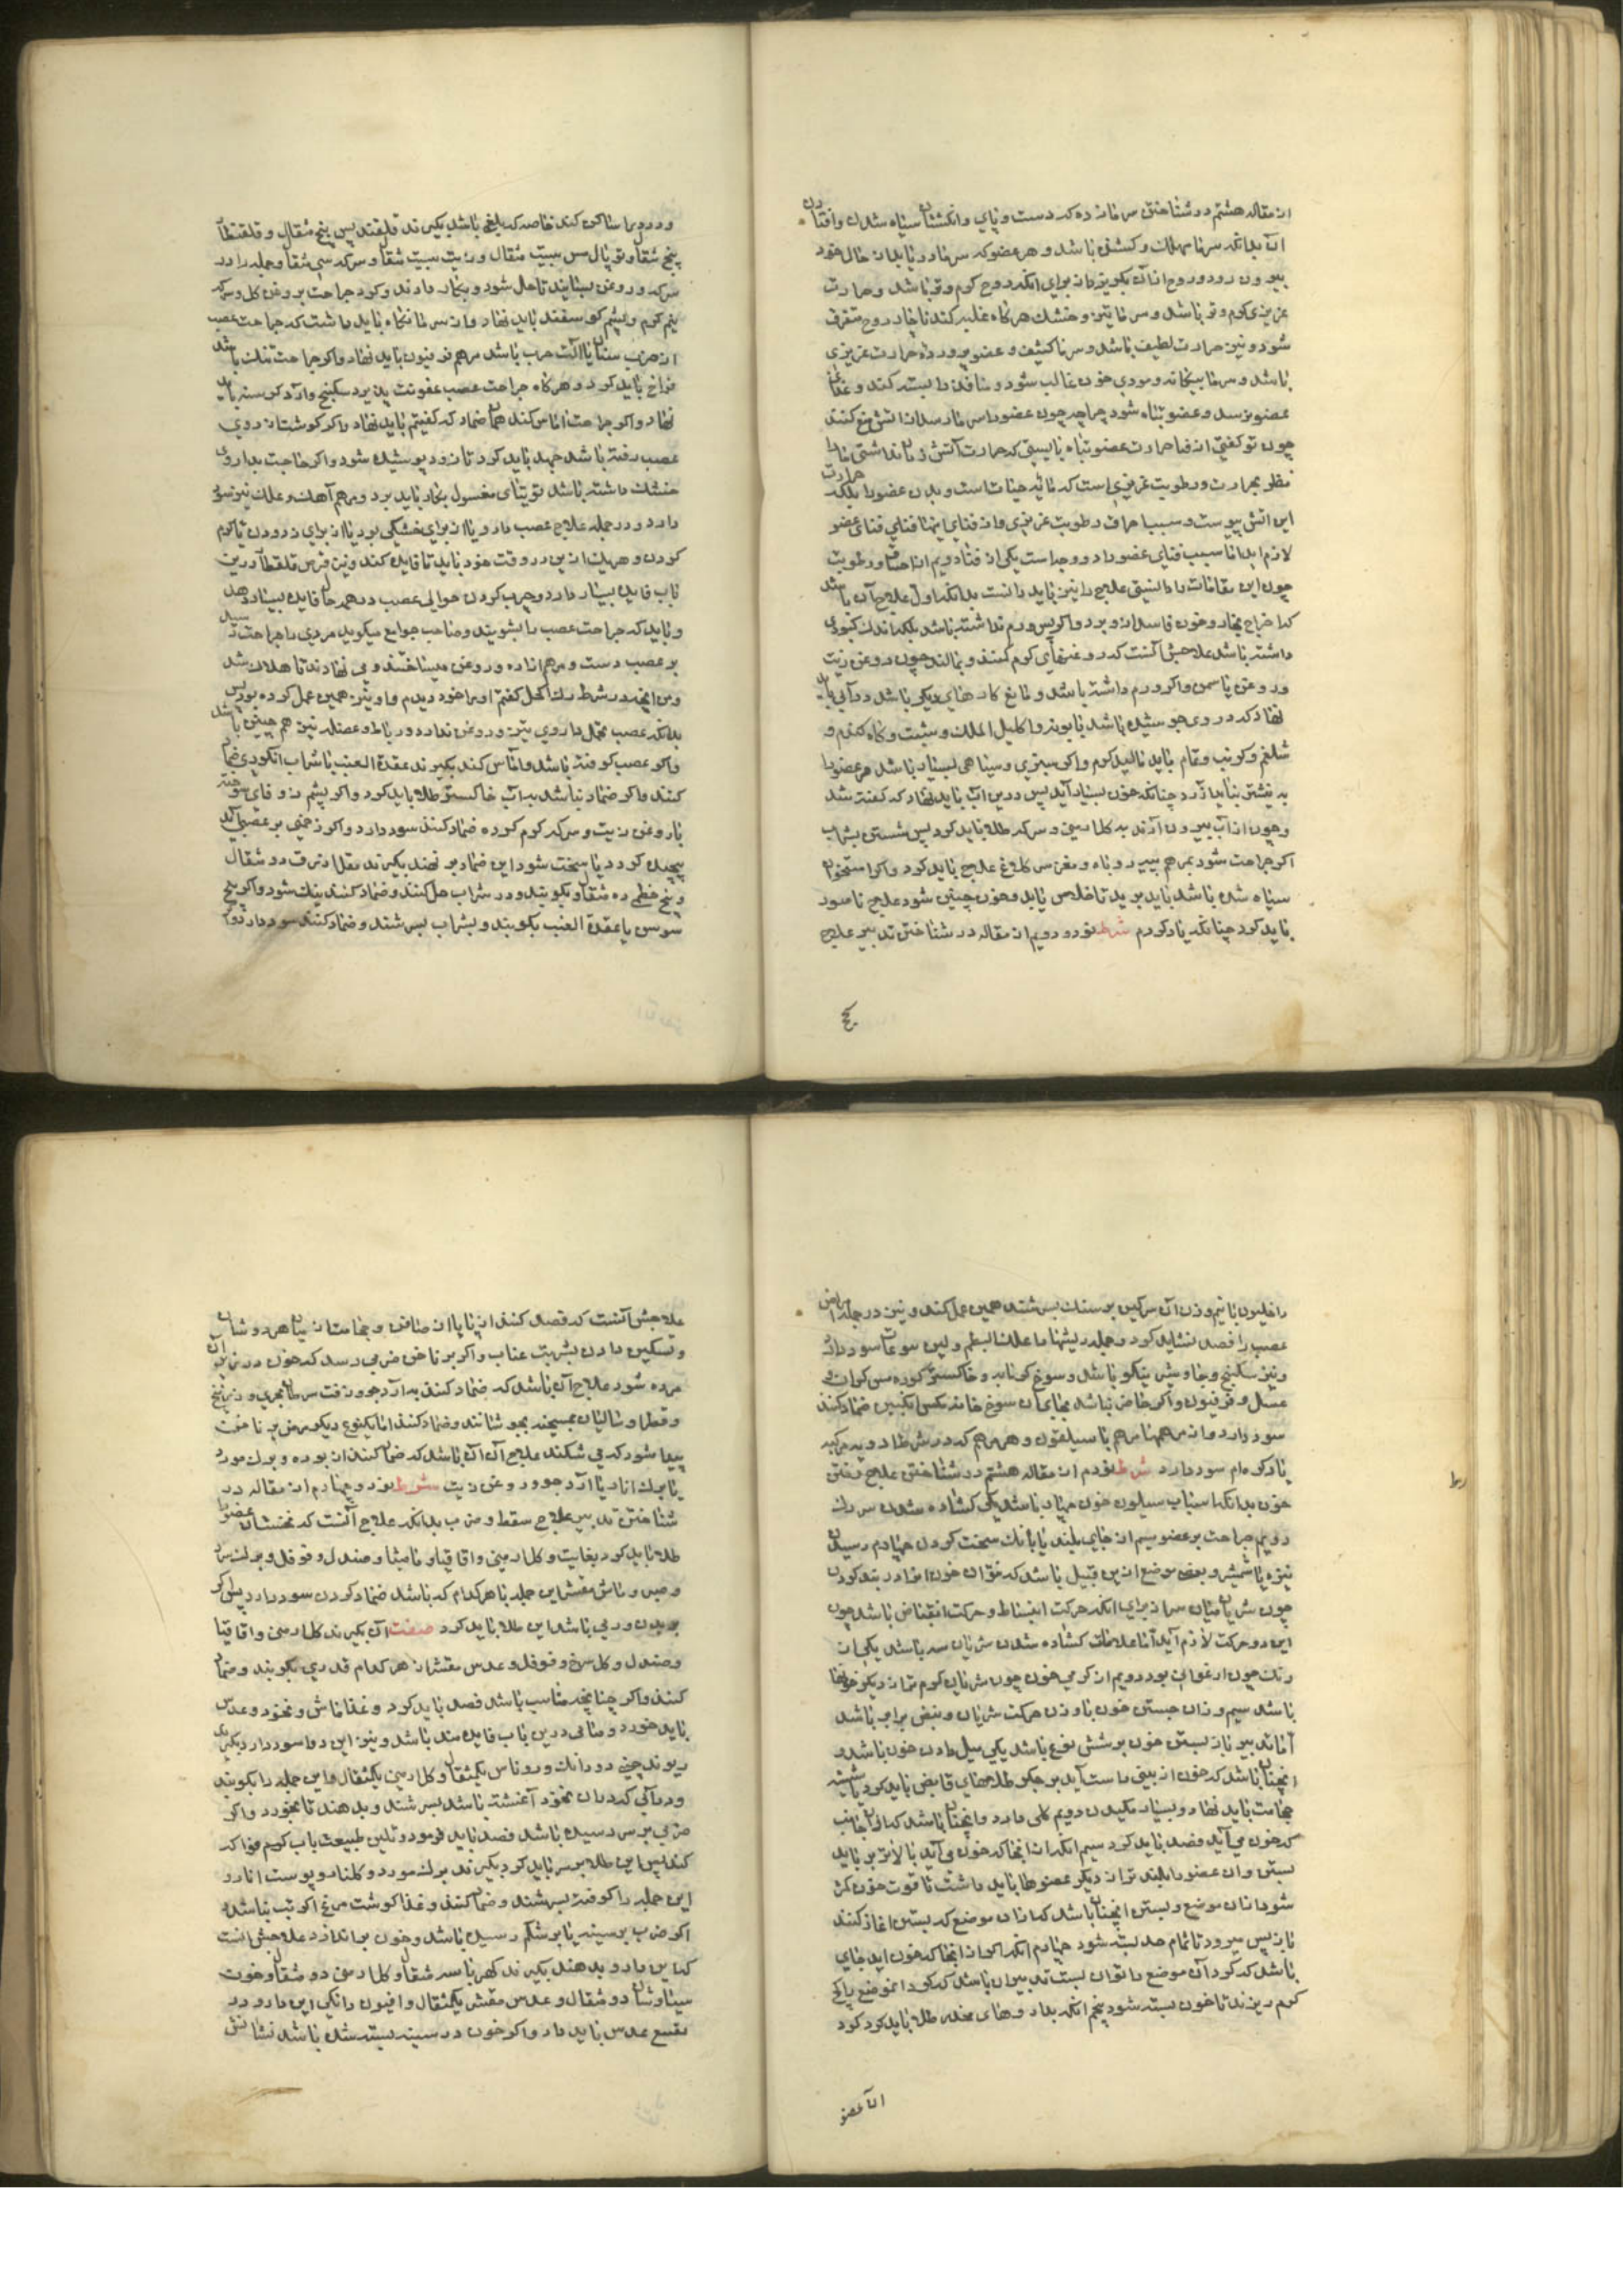 از مقاله هشتم در شناختن سرما زده که دست و پای و انگشتان سیاه شدن و افتادن
آن بدانکه سرما مهلک و کشنده باشد و هر عضو که سرما در یابد از حال خود
بیرون رود و روح از آن بگریزد از برای آنکه روح گرم و تر باشد و حرارت
غریزی گرم و تر باشد و سرما تیز و خشک هرگاه غلبه کند ناچار روح متفرق
شود و نیز حرارت لطیف باشد و سرما کثیف و عضو پرورده حرارت غریزی
باشد و سرما بیگانه و موذی چون غالب شود و منافذ را بسته کند و غذا
عضو نرسد و عضو تباه شود چراچه چون عضو را سرما رسد از آتش منع کنند
چون تو گفتی از فنا حرارت عضو تباه بایستی که حرارت آتش
نظر بحرارت و رطوبت غریزی است که مایه حیات است و بدن عضو را بلکه حرارت
این آتش یبوست و سبب احراق رطوبت غریزی و از فنای اینها فنای عضو
لازم اید اما سبب فنای عضو را دو وجه است یکی از دویم از احتراق رطوبت
چون این مقامات را دانستی علاج را نیز باید دانست بدانکه اول علاج آن باشد
که اخراج بخار و خون فاسد ازو برد و اگر پس ورم نداشته باشد بلکه اندک کبودی
داشته باشد علاجش آنست که روغنهای گرم کنند و بمالند چون روغن زیت
و روغن یاسمن و اگر ورم داشته باشد و مانع کارهای دیگر باشد در آبی باید
نهاد که در وی جوشیده باشد بابونه و اکلیل الملک و شبت و کاه گندم و
شلغم و کرنب و تمام باید مالید گرم و اگر سبزی و سیاهی بسیار باشد هر عضو را
به نیشتر بباید آزرد چنانکه خون بسیار آید پس درین آب باید نهاد که گفته شد
و چون از آب بیرون آرند به گل ارمنی و سرکه طلا باید کرد پس شستن بشراب
اگر جراحت شود بمرهم پیه روباه و مغز سر کلاغ علاج باید کرد و اگر استخوان
سیاه شده باشد باید برید تا خلاص یابد و چون چنین شود علاج ناصور
باید کرد چنانکه یاد کردم شرط نود و دویم از مقاله در شناختن تدبیر علاج
و درد را ساکن کند خاصه که بلغمی باشد بگیرند قلقند پس پنج مثقال و قلقطار
پنج مثقال و توبال مس بیست مثقال و زیت بیست مثقال و سرکه سی مثقال و جمله را در
سرکه و روغن بسایند تا حل شود و بکار دارند و گرد جراحت بروغن گل و سرکه
نیم گرم و پشم گوسفند باید نهاد و از سرما نگاه باید داشت که جراحت عصب
از ضرب سنان یا آلت حرب باشد مرهم فرفیون باید نهاد و اگر جراحت تنگ باشد
فراخ باید کرد و هرگاه جراحت عصب عفونت پذیرد سکبینج و آرد کرسنه باید
نهاد و اگر جراحت اماس کند هم ضماد که گفتیم باید نهاد و اگر گوشت از روی
عصب رفته باشد جهد باید کرد تا زود پوشیده شود و اگر حاجت بداروی
خشک داشته باشد توتیای مغسول بکار باید برد و مرهم آهک و علک نیز سود
دارد و در جمله علاج عصب دارو یا از برای خشکی بود یا از برای زدودن یا گرم
کردن و هر یک ازین در وقت خود باید تا فایده کند و نیز قرص قلقطار درین
باب فایده بسیار دارد و چرب کردن حوالی عصب در همه حال فایده بسیار دهد
و باید که جراحت عصب را بشویند و صاحب جوامع میگوید مردی را جراحت رسید
بر عصب دست و مرهم و روغن میساختند و می نهادند تا هلاک شد
و من آنچه در شرط رگ اکحل گفتم او را خود دیدم و او نیز همین عمل کرده بود پس
بدانکه عصب تحمل داروی تیز و روغن ندارد و رباط و عضله نیز هم چنین باشد
و اگر عصب کوفته باشد و آماس کند بگیرند عقدة العنب با شراب انگوری ضماد
کنند و اگر ضماد نباشد به آب خاکستر طلا باید کرد و اگر پشم زوفای سوخته
با روغن زیت و سرکه گرم کرده ضماد کنند سود دارد و اگر زخمی بر عصبی آید
پیچیده گردد یا سخت شود این ضماد بر نهند بگیرند مقل ازرق دو مثقال
و بیخ خطمی ده مثقال و بکوبند و در شراب حل کنند و ضماد کنند نیک شود و اگر بیخ
سوسن یا عقدة العنب بکوبند و بشراب بسرشند و ضماد کنند سود دارد و اگر
راخلیون با نیم وزن آن سرگین بز سنگ بسرشند همین عمل کند و نیز در جمله امراض
عصب را فصد نشاید کرد و جمله ریشها را علک البطم سود دارد
و نیز سکبینج و جاوشیر نیکو باشد و سوخ کونابه و خاکستر کوره مس گران
عسل و فرفیون و اگر حاضر نباشد بجای آن سوخ خانه مگس انگبین ضماد کنند
سود دارد و از مرهمها مرهم باسیلقون و هر مرهم که در شرط ادویه مرکبه
یاد کرده‌ام سود دارد شرط نود م از مقاله هشتم در شناختن علاج رفتن
خون بدانکه اسباب سیلان خون چهار باشد یکی گشاده شدن سر رگ
دویم جراحت بر عضو سیم از جای بلند یا بانک سخت کردن چهارم رسیدن
نیزه یا شمشیر و بعضی موضع ازین قبیل باشد که نتوان خون او را در بند کردن
چون شریان میان سر از برای آنکه حرکت انبساط و حرکت انقباض باشد چون
این دو حرکت لازم آید اما علامات گشاده شدن شریان سه باشد یکی آن
رنگ چون ارغوانی بود دویم از گرمی خون چون شریان گرم تر از دیگر خونها
باشد سیم وزن جستن خون با وزن حرکت شریان و نبض برابر باشد
اما تدبیر باز بستن خون بر شش نوع باشد یکی میل دادن خون باشد و
آنچنان باشد که خون از بینی راست آید بر جگر طلاهای قابض باید کرد یا شیشه
حجامت باید نهاد و بسیار مکیدن دویم و آنچنان باشد که از آن جانب
که خون می آید فصد باید کرد سیم آنکه از آنجا که خون می آید بالاتر بر باید
بستن و آن عضو را بلندتر از دیگر عضوها باید داشت تا قوت خون کمتر
شود از آن موضع و بستن آنچنان باشد که از آن موضع که بستن آغاز کنند
باز پس میرود تا تمام حد بسته شود چهارم آنکه اگر از آنجا که خون آید جای
باشد که گرد آن موضع را توان بست تدبیر آن باشد که گرد آن موضع
گرم ریزند تا خون بسته شود پنجم آنکه بداروهای مخدر طلا باید کرد گرد
آن عضو
علاجش آنست که فصد کنند از پا یا از صافن و حجامت از میان هر دو شانه
و تسکین دادن بشربت عناب و اگر بر ناخن ضربی رسد که خون در زیر آن
مرده شود علاج آن باشد که ضماد کنند به آرد جو و زفت سرطان بحری و زرنیخ
و قطران و شالیان بسیخند بجوشانند و ضماد کنند اما یکنوع دیگر مرض بر ناخن
پیدا شود که می شکند علاج آن آن باشد که ضماد کنند از برده و برگ مورد
یا برگ انار یا آرد جو و روغن زیت شرط نود و چهارم از مقاله در
شناختن تدبیر علاج سقطه و ضرب بدانکه علاج آنست که نخست آن عضو را
طلا باید کرد بغایت و گل ارمنی و اقاقیا و مامیثا و صندل و فوفل و برگ سرو
و صبر و ماش مقشر این جمله یا هر کدام که باشد ضماد کردن سود دارد پس اگر
بر بدن ورمی باشد این طلا باید کرد صفت آن بگیرند گل ارمنی و اقاقیا
و صندل و گل سرخ و فوفل و عدس مقشر از هر کدام قدری بکوبند و ضماد
کنند و اگر چنانچه مناسب باشد فصد باید کرد و غذا ماش و نخود و عدس
باید خورد و درین باب فایده مند باشد و نیز این دوا سود دارد بگیرند
ریوند چینی دو دانک و روناس یکمثقال و گل ارمنی یکمثقال و این جمله را بکوبند
و در آبی که در آن نخود آغشته باشد بسرشند و بدهند تا بخورد و اگر
ضربی بر سر رسیده باشد فصد باید فرمود و تلیین طبیعت باب
کند پس این طلا بر سر باید کرد بگیرند برگ مورد و گلنار و پوست انار و
این جمله را کوفته بسرشند و ضماد کنند و غذا گوشت مرغ اگر تب نباشد و
اگر ضرب بر سینه یا بر شکم رسیده باشد و خون براندازد علاجش آنست
که این دارو بدهند بگیرند کهربا سه مثقال و گل ارمنی دو مثقال و خون
سیاوشان دو مثقال و عدس مقشر یکمثقال و افیون دانکی این دارو در
نقیع عدس باید داد و اگر خون در سینه بسته شده باشد نشانش